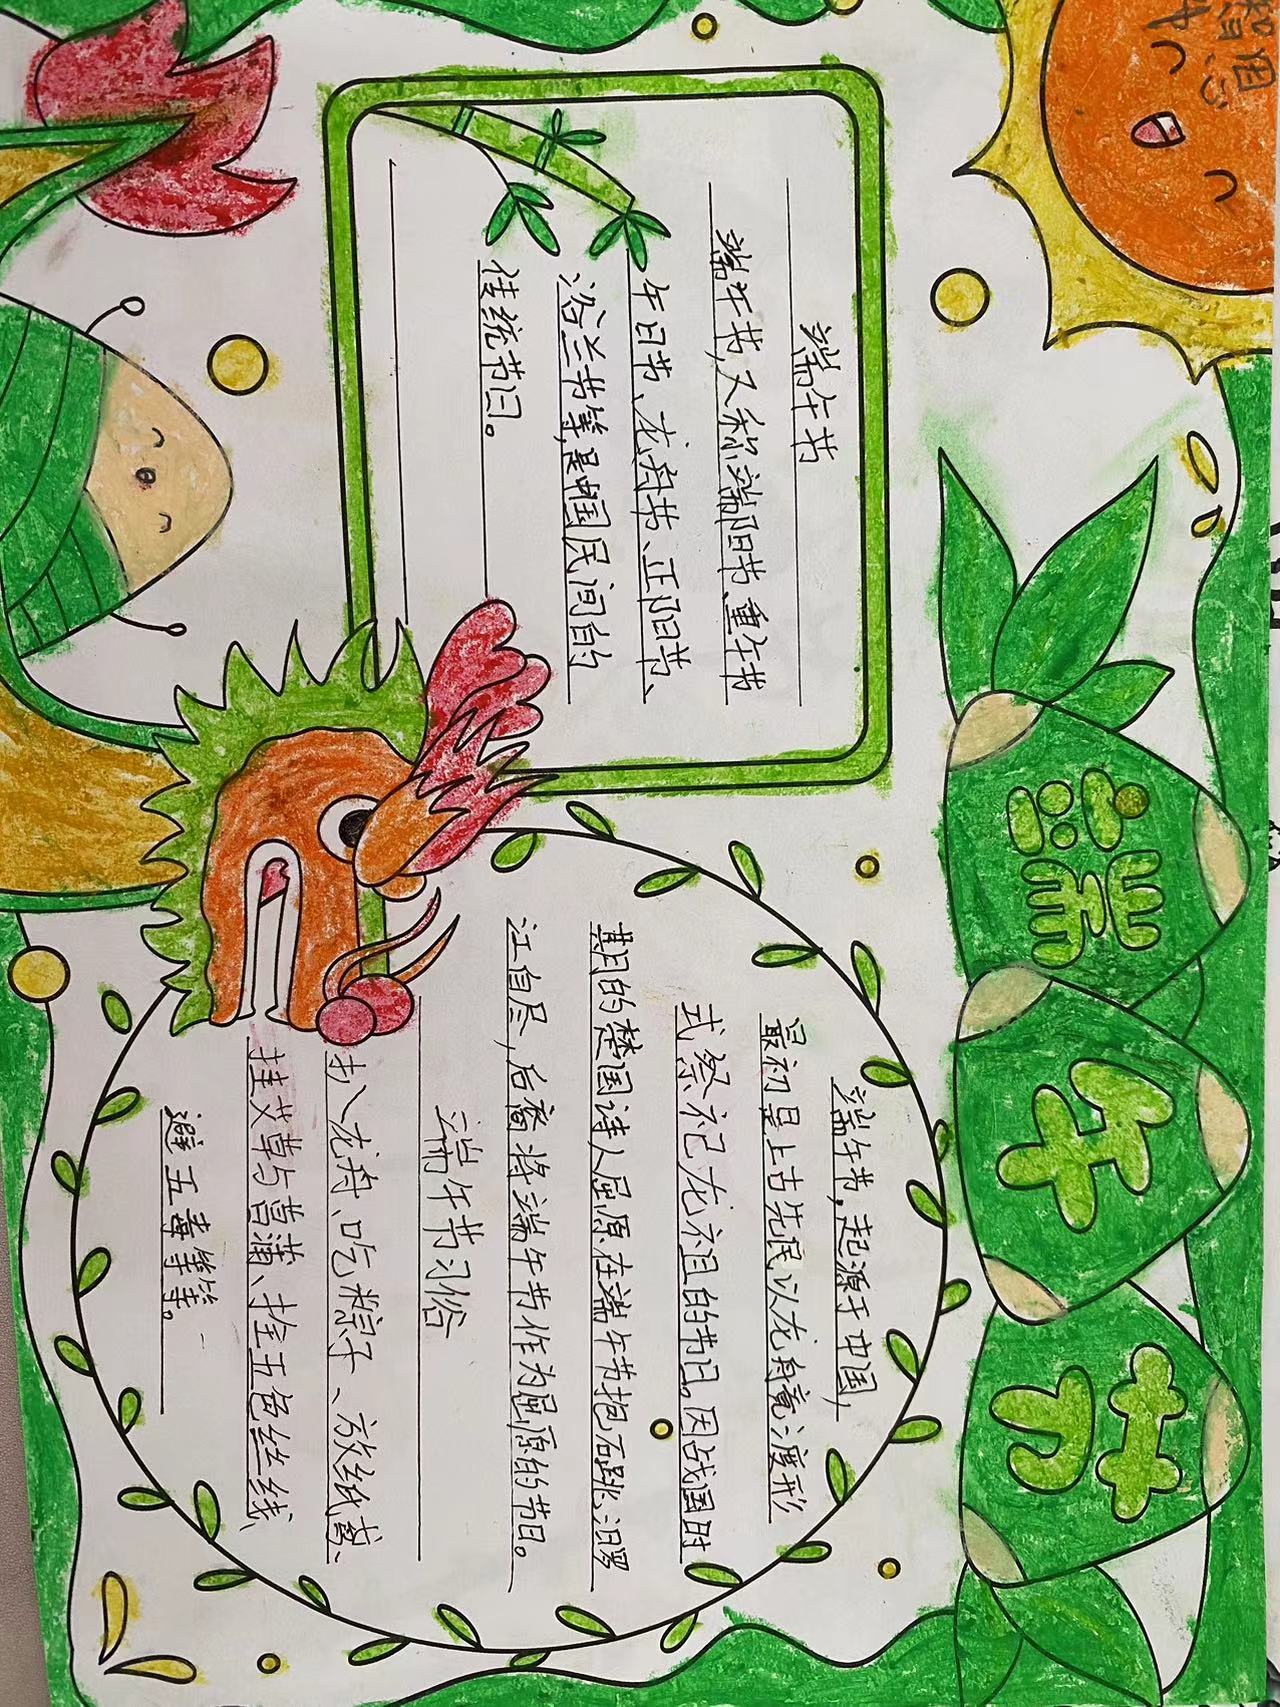 端午节
端午节
端午节,又称端阳节、重午节
午日节、龙舟节、正阳节、
浴兰节等,是中国民间的
传统节日。
端午节,起源于中国,
最初是上古先民以龙舟竞渡形
式祭祀龙祖的节日。因战国时
期的楚国诗人屈原在端午节抱石跳汨罗
江自尽,后裔将端午节作为屈原的节日。
端午节习俗
扒龙舟、吃粽子、放纸鸢、
挂艾草与菖蒲、拴五色丝线、
避五毒等等。